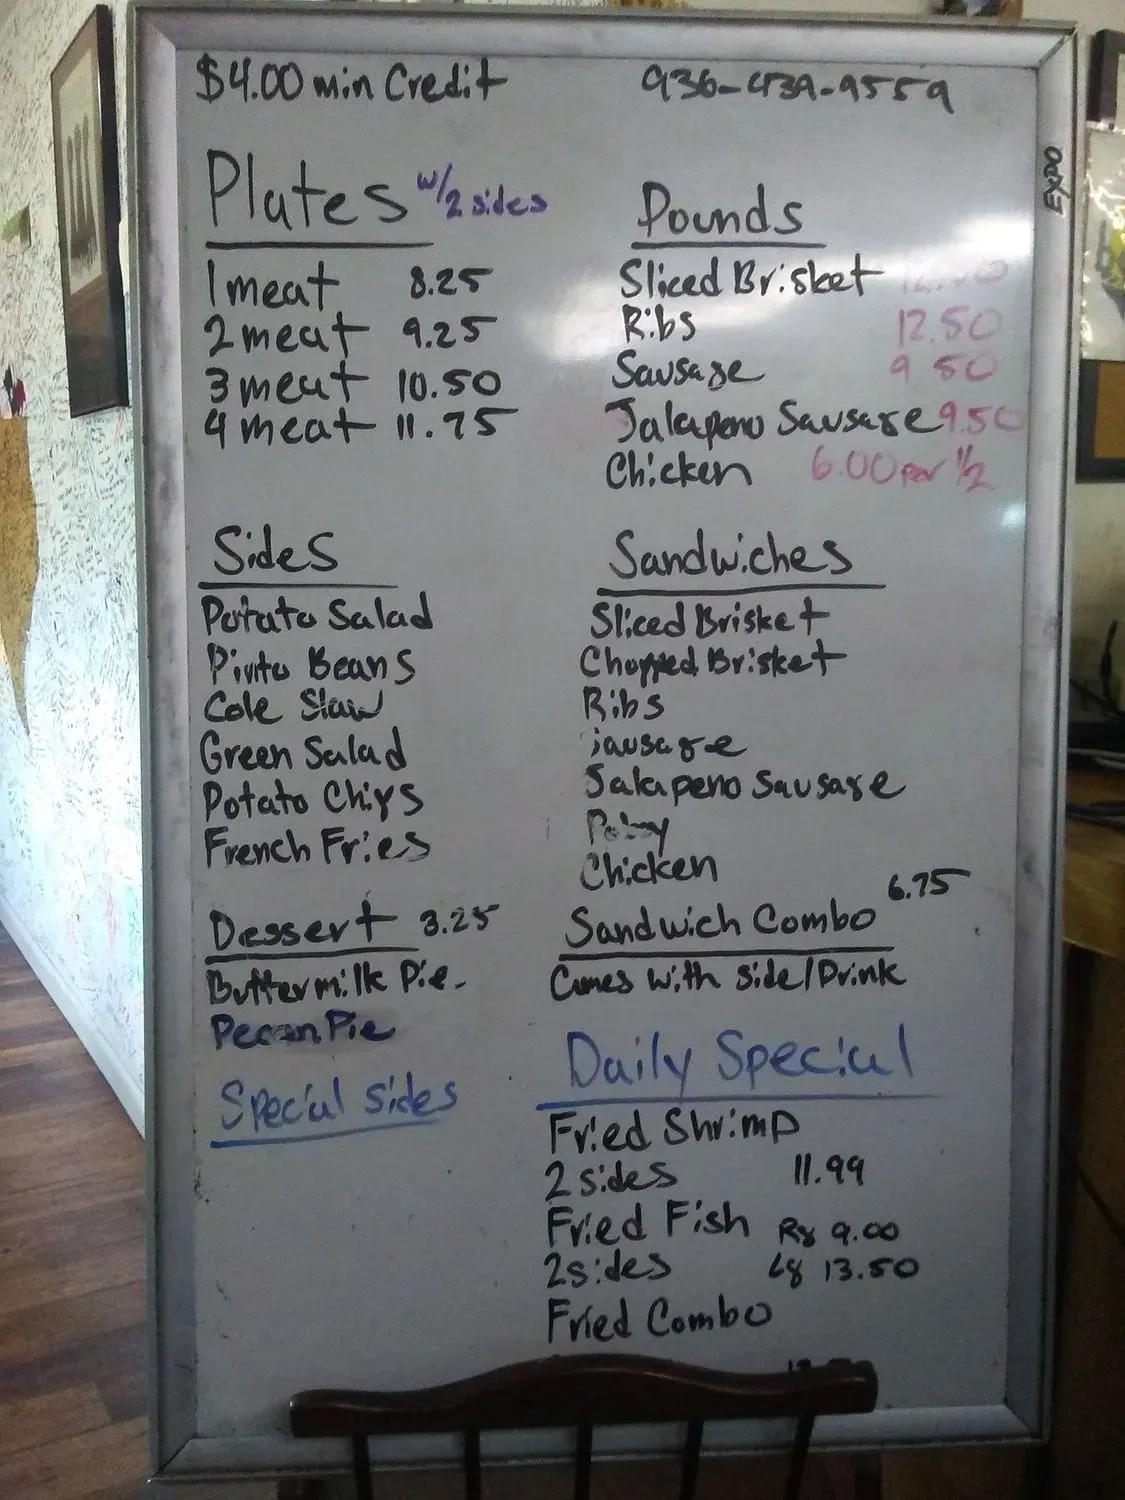 $4.00 min Credit
936-439-9559
EXPO
Plates w/2 sides
1 meat 8.25
2 meat 9.25
3 meat 10.50
4 meat 11.75
Pounds
Sliced Brisket
Ribs 12.50
Sausage 9 50
Jalapeno Sausage 9.50
Chicken 6.00 per 1/2
Sides
Potato Salad
Pinto Beans
Cole Slaw
Green Salad
Potato Chips
French Fries
Sandwiches
Sliced Brisket
Chopped Brisket
Ribs
Sausage
Jalapeno Sausage
Chicken
Dessert 3.25
Buttermilk Pie.
Pecan Pie
Special sides
Sandwich Combo 6.75
Comes with side/Drink
Daily Special
Fried Shrimp
2 sides 11.99
Fried Fish Rg 9.00
2 sides Lg 13.50
Fried Combo